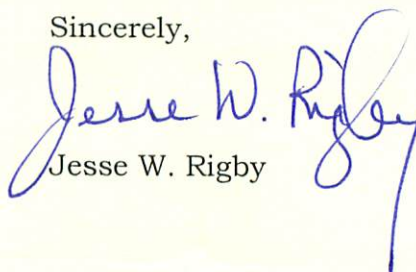 Sincerely,
Jesse W. Rigby
Jesse W. Rigby